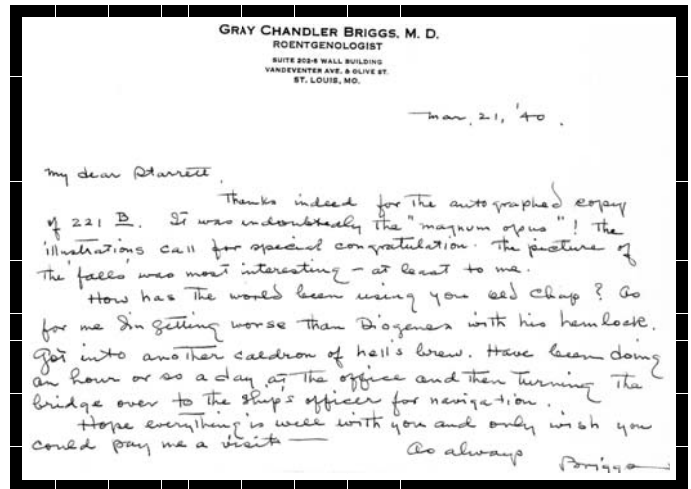 GRAY CHANDLER BRIGGS, M. D.
ROENTGENOLOGIST
SUITE 202-6 WALL BUILDING
VANDEVENTER AVE. & OLIVE ST.
ST. LOUIS, MO.
Mar. 21, '40.
My dear Starrett,
Thanks indeed for the autographed copy
of 221 B. It was undoubtedly the "magnum opus"! The
illustrations call for special congratulation. The picture of
the 'falls' was most interesting – at least to me.
How has the world been using you old chap? As
for me I'm getting worse than Diogenes with his hemlock.
Got into another caldron of hell's brew. Have been doing
an hour or so a day at the office and then turning the
bridge over to the ship's officer for navigation.
Hope everything is well with you and only wish you
could pay me a visit —
As always
Briggs